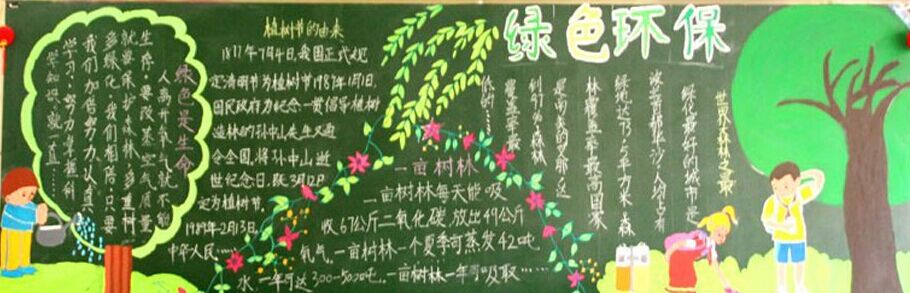 绿色环保
绿色是生命
人离开氧气就不能
生存,要改善空气质量
就要保护森林,多重树
多绿化,我们相信,只要
我们加倍努力,认真
学习,努力掌握科
学知识,就一直……
植树节的由来
定清明节为植树节1987年1月1日,
国民政府为纪念一贯倡导植树
造林的孙中山先生又通
令全国,将孙中山逝
世纪念日,既3月12日
定为植树节,
1989年2月13日
中华人民……
一亩树林
一亩树林每天能吸
收67公斤二氧化碳,放出49公斤
氧气,一亩树林一个夏季可蒸发42吨
水,一年可达300-500吨,一亩树林一年可吸取……
世界森林之最
绿化最好的城市是
波兰首都华沙,人均占有
绿地达73平方米,森
林覆盖率最高国家
是南美的
到97%,森林
覆盖率最
低的……